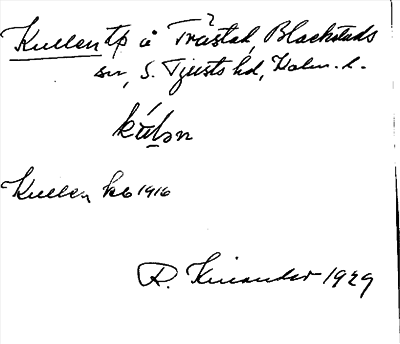 Kullen tp å Trästad, Blackstads
sn, S. Tjusts hd, Kalm. l.
Kullen kb 1916
R. Kinander 1929